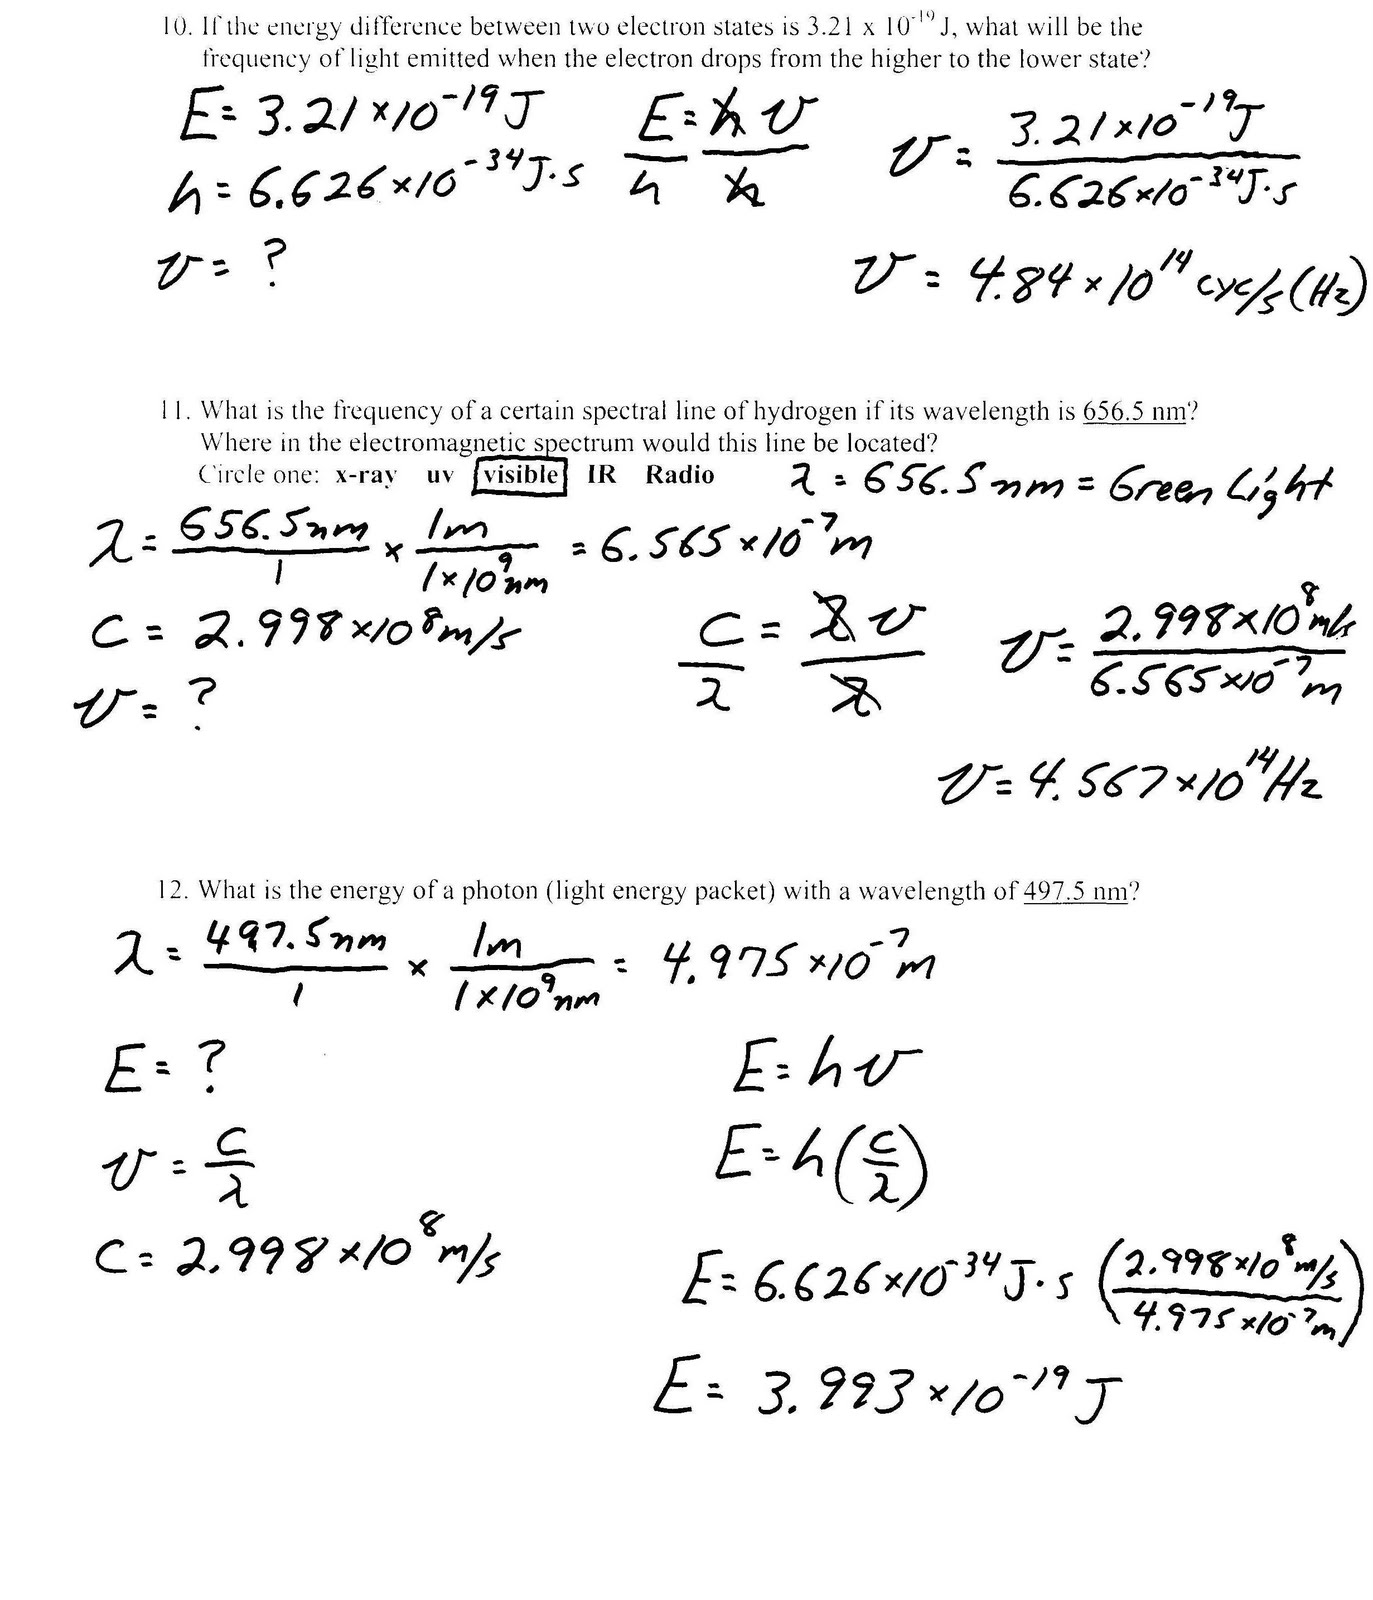 10. If the energy difference between two electron states is 3.21 x 10⁻¹⁹ J, what will be the
frequency of light emitted when the electron drops from the higher to the lower state?
E = 3.21 × 10⁻¹⁹ J
h = 6.626 × 10⁻³⁴ J·s
ν = ?
E/h = hν/h
ν = 3.21 × 10⁻¹⁹ J / 6.626 × 10⁻³⁴ J·s
ν = 4.84 × 10¹⁴ cyc/s (Hz)
11. What is the frequency of a certain spectral line of hydrogen if its wavelength is 656.5 nm?
Where in the electromagnetic spectrum would this line be located?
Circle one: x-ray uv visible IR Radio
λ = 656.5 nm = Green Light
λ = 656.5 nm / 1 × 1 m / 1 × 10⁹ nm = 6.565 × 10⁻⁷ m
C = 2.998 × 10⁸ m/s
ν = ?
C/λ = λν/λ
ν = 2.998 × 10⁸ m/s / 6.565 × 10⁻⁷ m
ν = 4.567 × 10¹⁴ Hz
12. What is the energy of a photon (light energy packet) with a wavelength of 497.5 nm?
λ = 497.5 nm / 1 × 1 m / 1 × 10⁹ nm = 4.975 × 10⁻⁷ m
E = ?
ν = C/λ
C = 2.998 × 10⁸ m/s
E = hν
E = h(C/λ)
E = 6.626 × 10⁻³⁴ J·s (2.998 × 10⁸ m/s / 4.975 × 10⁻⁷ m)
E = 3.993 × 10⁻¹⁹ J